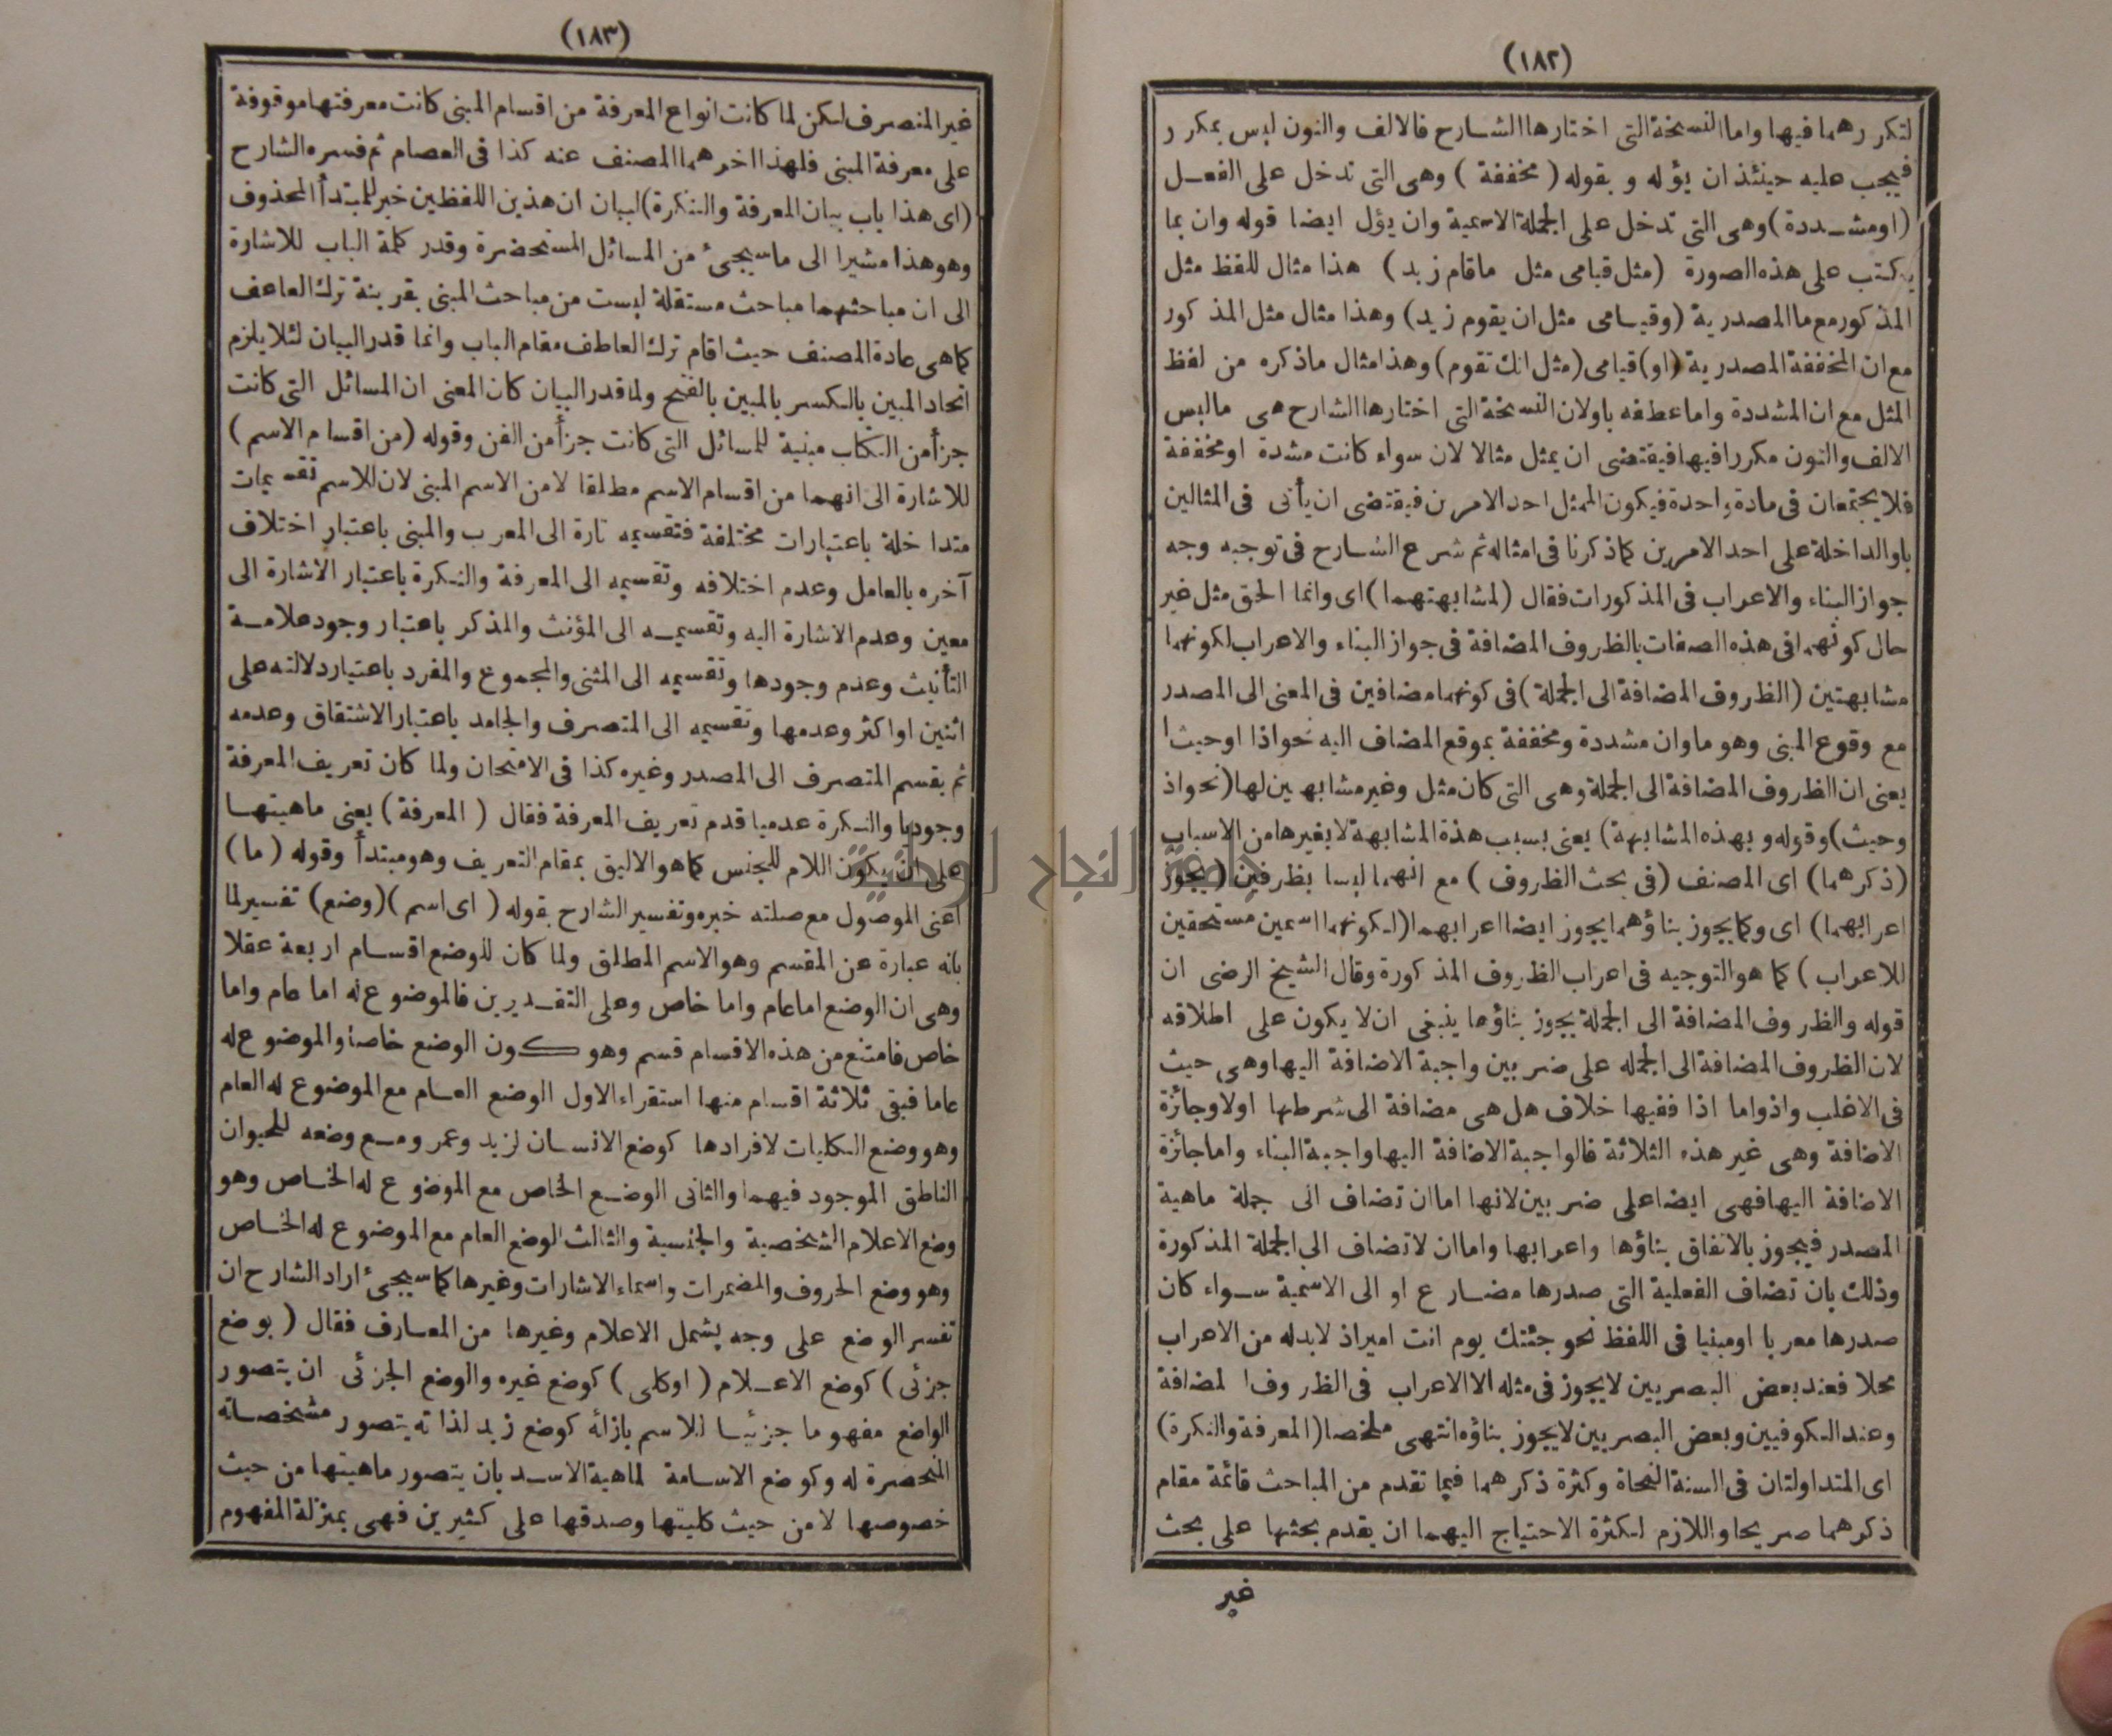 (١٨٢)
لتكررهما فيها واما النسخة التى اختارها الشارح فالالف والنون ليس بمكرر
فيجب عليه حينئذ ان يؤله و بقوله (مخففة) وهى التى تدخل على الفعل
(اومشددة) وهى التى تدخل على الجملة الاسمية وان يؤل ايضا قوله وان بما
يكتب على هذه الصورة (مثل قيامى مثل ماقام زيد) هذا مثال للفظ مثل
المذكور مع ما المصدرية (وقيامى مثل ان يقوم زيد) وهذا مثال مثل المذكور
مع ان المخففة المصدرية (او) قيامى (مثل انك تقوم) وهذا مثال ماذكره من لفظ
المثل مع ان المشددة واما عطفه باولان النسخة التى اختارها الشارح هى ماليس
الالف والنون مكررا فيها فيقتضى ان يمثل مثالا لان سواء كانت مشدة اومخففة
فلا يجتمعان فى مادة واحدة فيكون الممثل احد الامرين فيقتضى ان يأتى فى المثالين
باوالداخلة على احد الامرين كما ذكرنا فى امثاله ثم شرع الشارح فى توجيه وجه
جواز البناء والاعراب فى المذكورات فقال (لمشابهتهما) اى وانما الحق مثل غير
حال كونهما فى هذه الصفات بالظروف المضافة فى جواز البناء والاعراب لكونهما
مشابهتين (الظروف المضافة الى الجملة) فى كونهما مضافين فى المعنى الى المصدر
مع وقوع المبنى وهو ما وان مشددة ومخففة بموقع المضاف اليه نحو اذا اوحيث
يعنى ان الظروف المضافة الى الجملة وهى التى كان مثل وغير مشابهين لها (نحو اذ
وحيث) وقوله و بهذه المشابهة) يعنى بسبب هذة المشابهة لا بغيرها من الاسباب
(ذكرهما) اى المصنف (فى بحث الظروف) مع انهما ليسا بظرفين (يجوز
اعرابهما) اى وكما يجوز بناؤهما يجوز ايضا اعرابهما (لكونهما اسمين مستحقين
للاعراب) كما هو التوجيه فى اعراب الظروف المذكورة وقال الشيخ الرضى ان
قوله والظروف المضافة الى الجملة يجوز بناؤها ينبغى ان لا يكون على اطلاقه
لان الظروف المضافة الى الجمله على ضربين واجبة الاضافة اليها وهى حيث
فى الاغلب واذ واما اذا ففيها خلاف هل هى مضافة الى شرطها اولا وجائزة
الاضافة وهى غير هذه الثلاثة فالواجبة الاضافة اليها واجبة البناء واما جائزة
الاضافة اليها فهى ايضا على ضربين لانها اما ان تضاف الى جملة ماهية
المصدر فيجوز بالاتفاق بناؤها واعرابها واما ان لا تضاف الى الجملة المذكورة
وذلك بان تضاف الفعلية التى صدرها مضارع او الى الاسمية سواء كان
صدرها معربا اومبنيا فى اللفظ نحو جئتك يوم انت امير اذ لابد له من الاعراب
محلا فعند بعض البصريين لا يجوز فى مثله الا الاعراب فى الظروف المضافة
وعند الكوفيين وبعض البصريين لا يجوز بناؤه انتهى ملخصا (المعرفة والنكرة)
اى المتداولتان فى السنة النحاة وكثرة ذكرهما فيما تقدم من المباحث قائمة مقام
ذكرهما صريحا واللازم لكثرة الاحتياج اليهما ان يقدم بحثها على بحث
غير
(١٨٣)
غير المنصرف لكن لما كانت انواع المعرفة من اقسام المبنى كانت معرفتها موقوفة
على معرفة المبنى فلهذا اخرهما المصنف عنه كذا فى العصام ثم فسره الشارح
(اى هذا باب بيان المعرفة والنكرة) لبيان ان هذين اللفظين خبر للمبتدأ المحذوف
وهو هذا مشيرا الى ماسيجئ من المسائل المستحضرة وقدر كلمة الباب للاشارة
الى ان مباحثهما مباحث مستقلة ليست من مباحث المبنى بقرينة ترك العاعف
كماهى عادة المصنف حيث اقام ترك العاطف مقام الباب وانما قدر البيان لئلا يلزم
اتحاد المبين بالكسر بالمبين بالفتح ولما قدر البيان كان المعنى ان المسائل التى كانت
جزأ من الكتاب مبنية للمسائل التى كانت جزأ من الفن وقوله (من اقسام الاسم)
للاشارة الى انهما من اقسام الاسم مطلقا لا من الاسم المبنى لان للاسم تقسيمات
متداخلة باعتبارات مختلفة فتقسيمه تارة الى المعرب والمبنى باعتبار اختلاف
آخره بالعامل وعدم اختلافه وتقسيمه الى المعرفة والنكرة باعتبار الاشارة الى
معين وعدم الاشارة اليه وتقسيمه الى المؤنث والمذكر باعتبار وجود علامة
التأنيث وعدم وجودها وتقسيمه الى المثنى والمجموع والمفرد باعتبار دلالته على
اثنين اواكثر وعدمها وتقسيمه الى المتصرف والجامد باعتبار الاشتقاق وعدمه
ثم يقسم المتصرف الى المصدر وغيره كذا فى الامتحان ولما كان تعريف المعرفة
وجوديا والنكرة عدميا قدم تعريف المعرفة فقال (المعرفة) يعنى ماهيتها
على ان يكون اللام للجنس كما هو الاليق بمقام التعريف وهو مبتدأ وقوله (ما)
اعنى الموصول مع صلته خبره وتفسير الشارح بقوله (اى اسم) (وضع) تفسير لما
بانه عبارة عن المقسم وهو الاسم المطلق ولما كان للوضع اقسام اربعة عقلا
وهى ان الوضع اما عام واما خاص وعلى التقديرين فالموضوع له اما عام واما
خاص فامتنع من هذه الاقسام قسم وهو كون الوضع خاصا والموضوع له
عاما فبقى ثلاثة اقسام منها استقراء الاول الوضع العام مع الموضوع له العام
وهو وضع الكليات لافرادها كوضع الانسان لزيد وعمرو مع وضعه للحيوان
الناطق الموجود فيهما والثانى الوضع الخاص مع الموضوع له الخاص وهو
وضع الاعلام الشخصية والجنسية والثالث الوضع العام مع الموضوع له الخاص
وهو وضع الحروف والمضمرات واسماء الاشارات وغيرها كما سيجئ اراد الشارح ان
تفسر الوضع على وجه يشمل الاعلام وغيرها من المعارف فقال (بوضع
جزئى) كوضع الاعلام (اوكلى) كوضع غيره والوضع الجزئى ان يتصور
الواضع مفهوما جزئيا للاسم بازائه كوضع زيد لذاته يتصور مشخصاته
المنحصرة له وكوضع الاسامة لماهية الاسد بان يتصور ماهيتها من حيث
خصوصها لا من حيث كليتها وصدقها على كثيرين فهى بمنزلة المفهوم
جامعة النجاح الوطنية